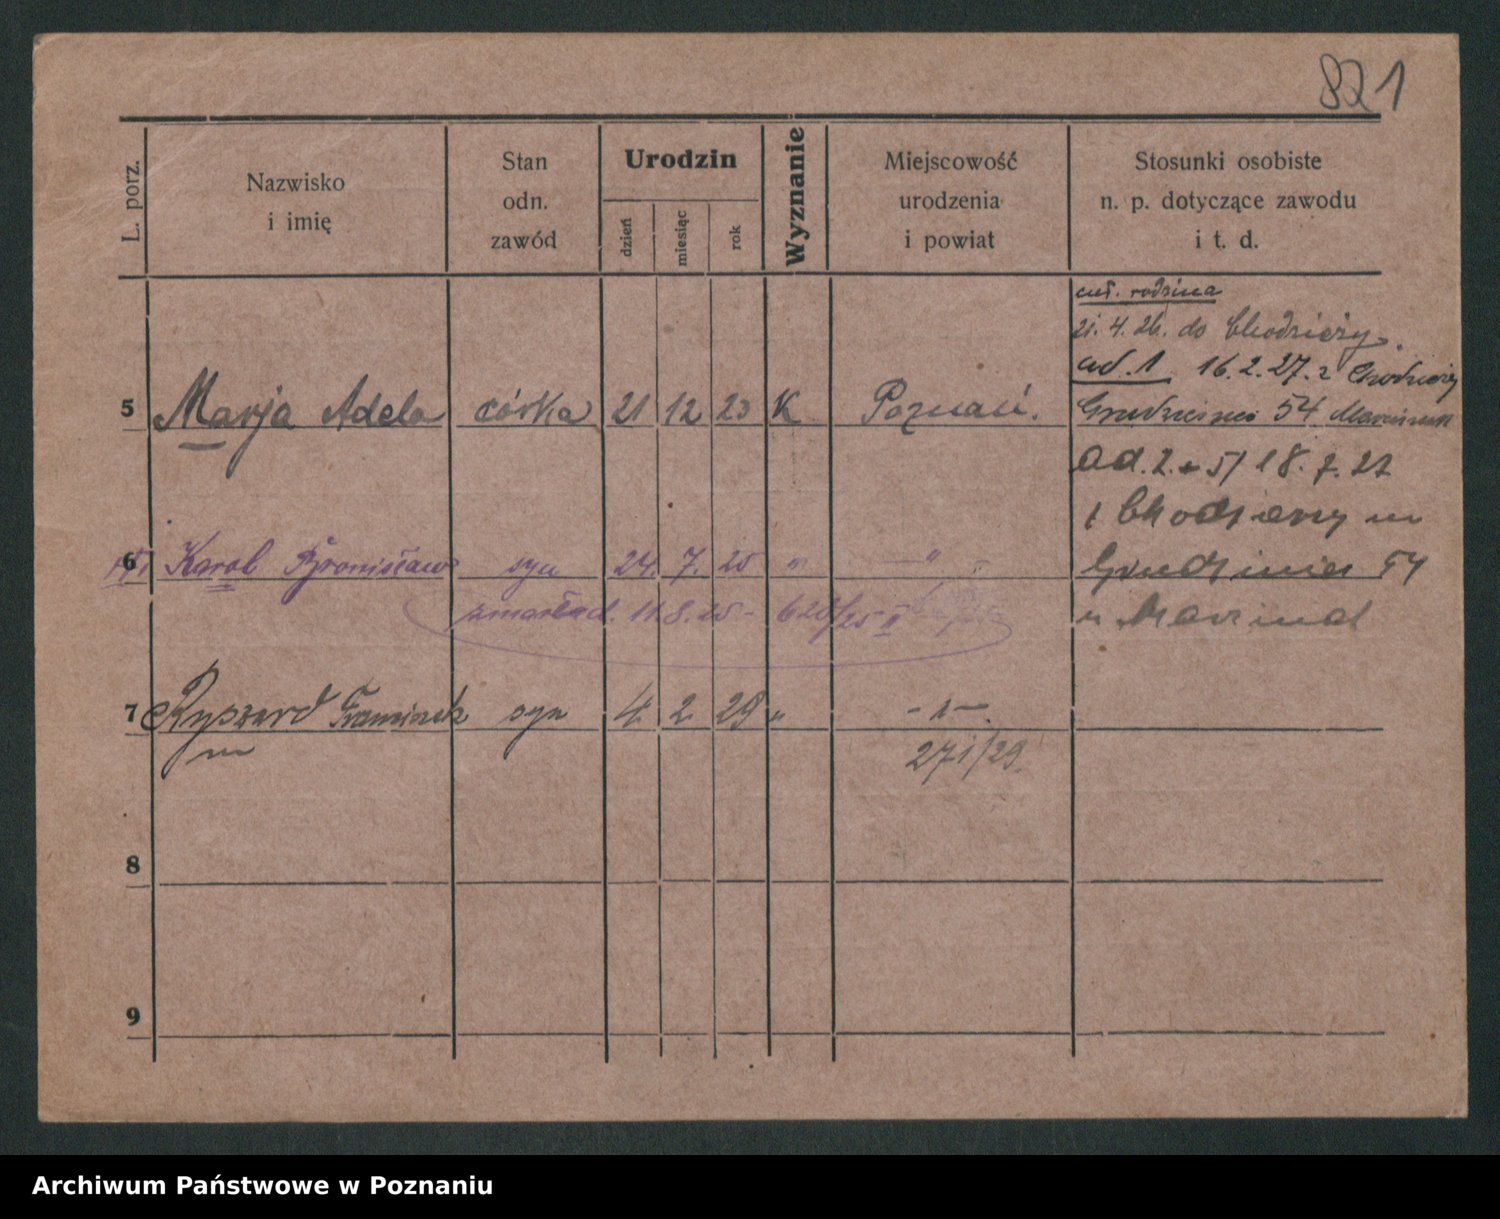 821
L. porz.
Nazwisko
i imię
Stan
odn.
zawód
Urodzin
dzień
miesiąc
rok
Wyznanie
Miejscowość
urodzenia
i powiat
Stosunki osobiste
n. p. dotyczące zawodu
i t. d.
rodzina
21. 4. 26. do Chodzieży.
ad. 1 16. 2. 27. z Chodzieży
54
5 Marja Adela córka 21 12 23 K Poznań.
ad. 2 + 5/ 18. 7. 27
z Chodzieży
54
6 Karol Bronisław syn 24. 7. 25 " "
zmarł d. 11. 8. 25 - 628/25 II
7 Ryszard Franciszek syn 4. 2. 29 " - " -
271/29.
8
9
Archiwum Państwowe w Poznaniu